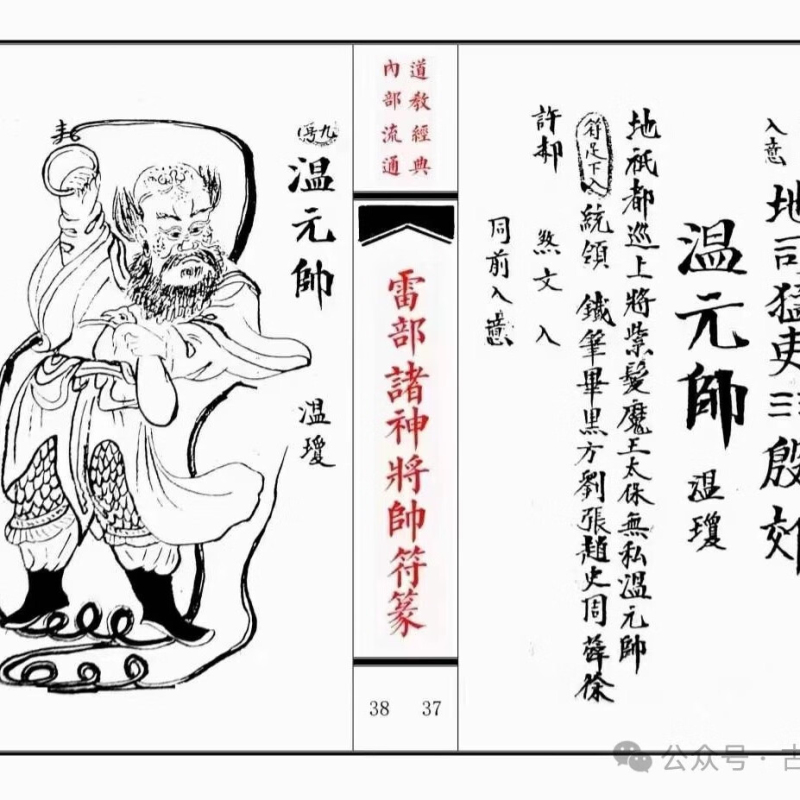 入意
地司猛吏 殷郊
温元帥
温瓊
地祇都巡上將紫髮魔王太保無私溫元帥
符足下入
統領 鐵筆畢黑方劉張趙史周薛徐
許郝 煞文入
同前入意
道教經典
內部流通
雷部諸神將帥符篆
38 37
温元帥
温瓊
公众号·古